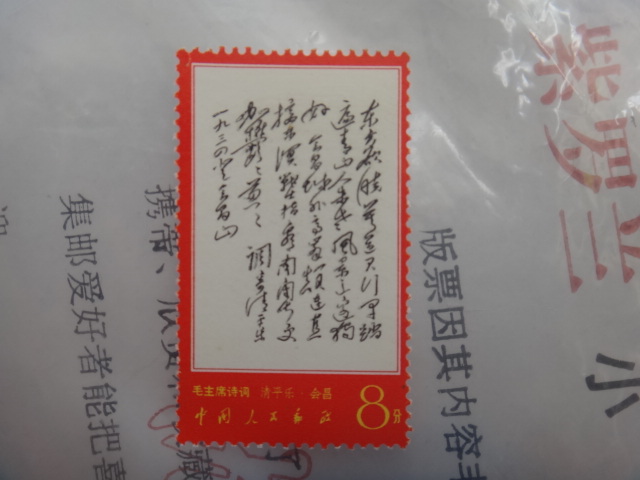 东方欲晓莫道君行早踏
遍青山人未老风景这边独
好会昌城外高峰颠连直
接东溟战士指看南粤更
加郁々葱々调寄清平乐
一九三四登会昌山
毛主席诗词 清平乐·会昌
中国人民邮政 8分
紫罗兰
小
版票因其内容丰
携带、
藏
集邮爱好者能把喜